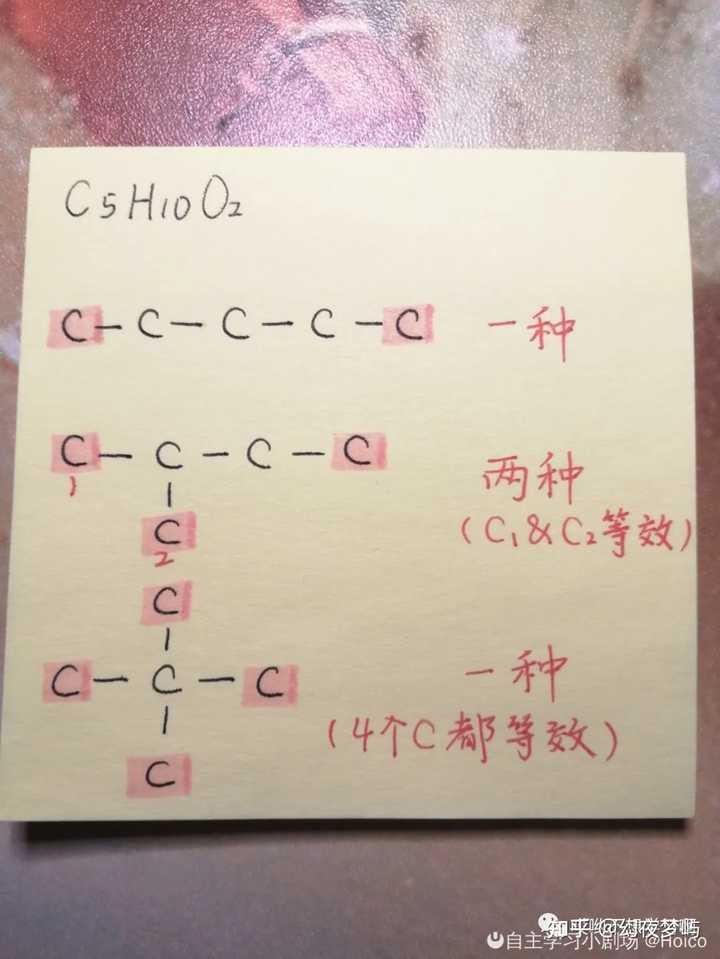 C5H10O2
C-C-C-C-C 一种
C-C-C-C 两种
1
C (C1&C2等效)
2
C
C-C-C 一种
(4个C都等效)
C
知乎 @幻夜梦屿
自主学习小剧场 @Holco